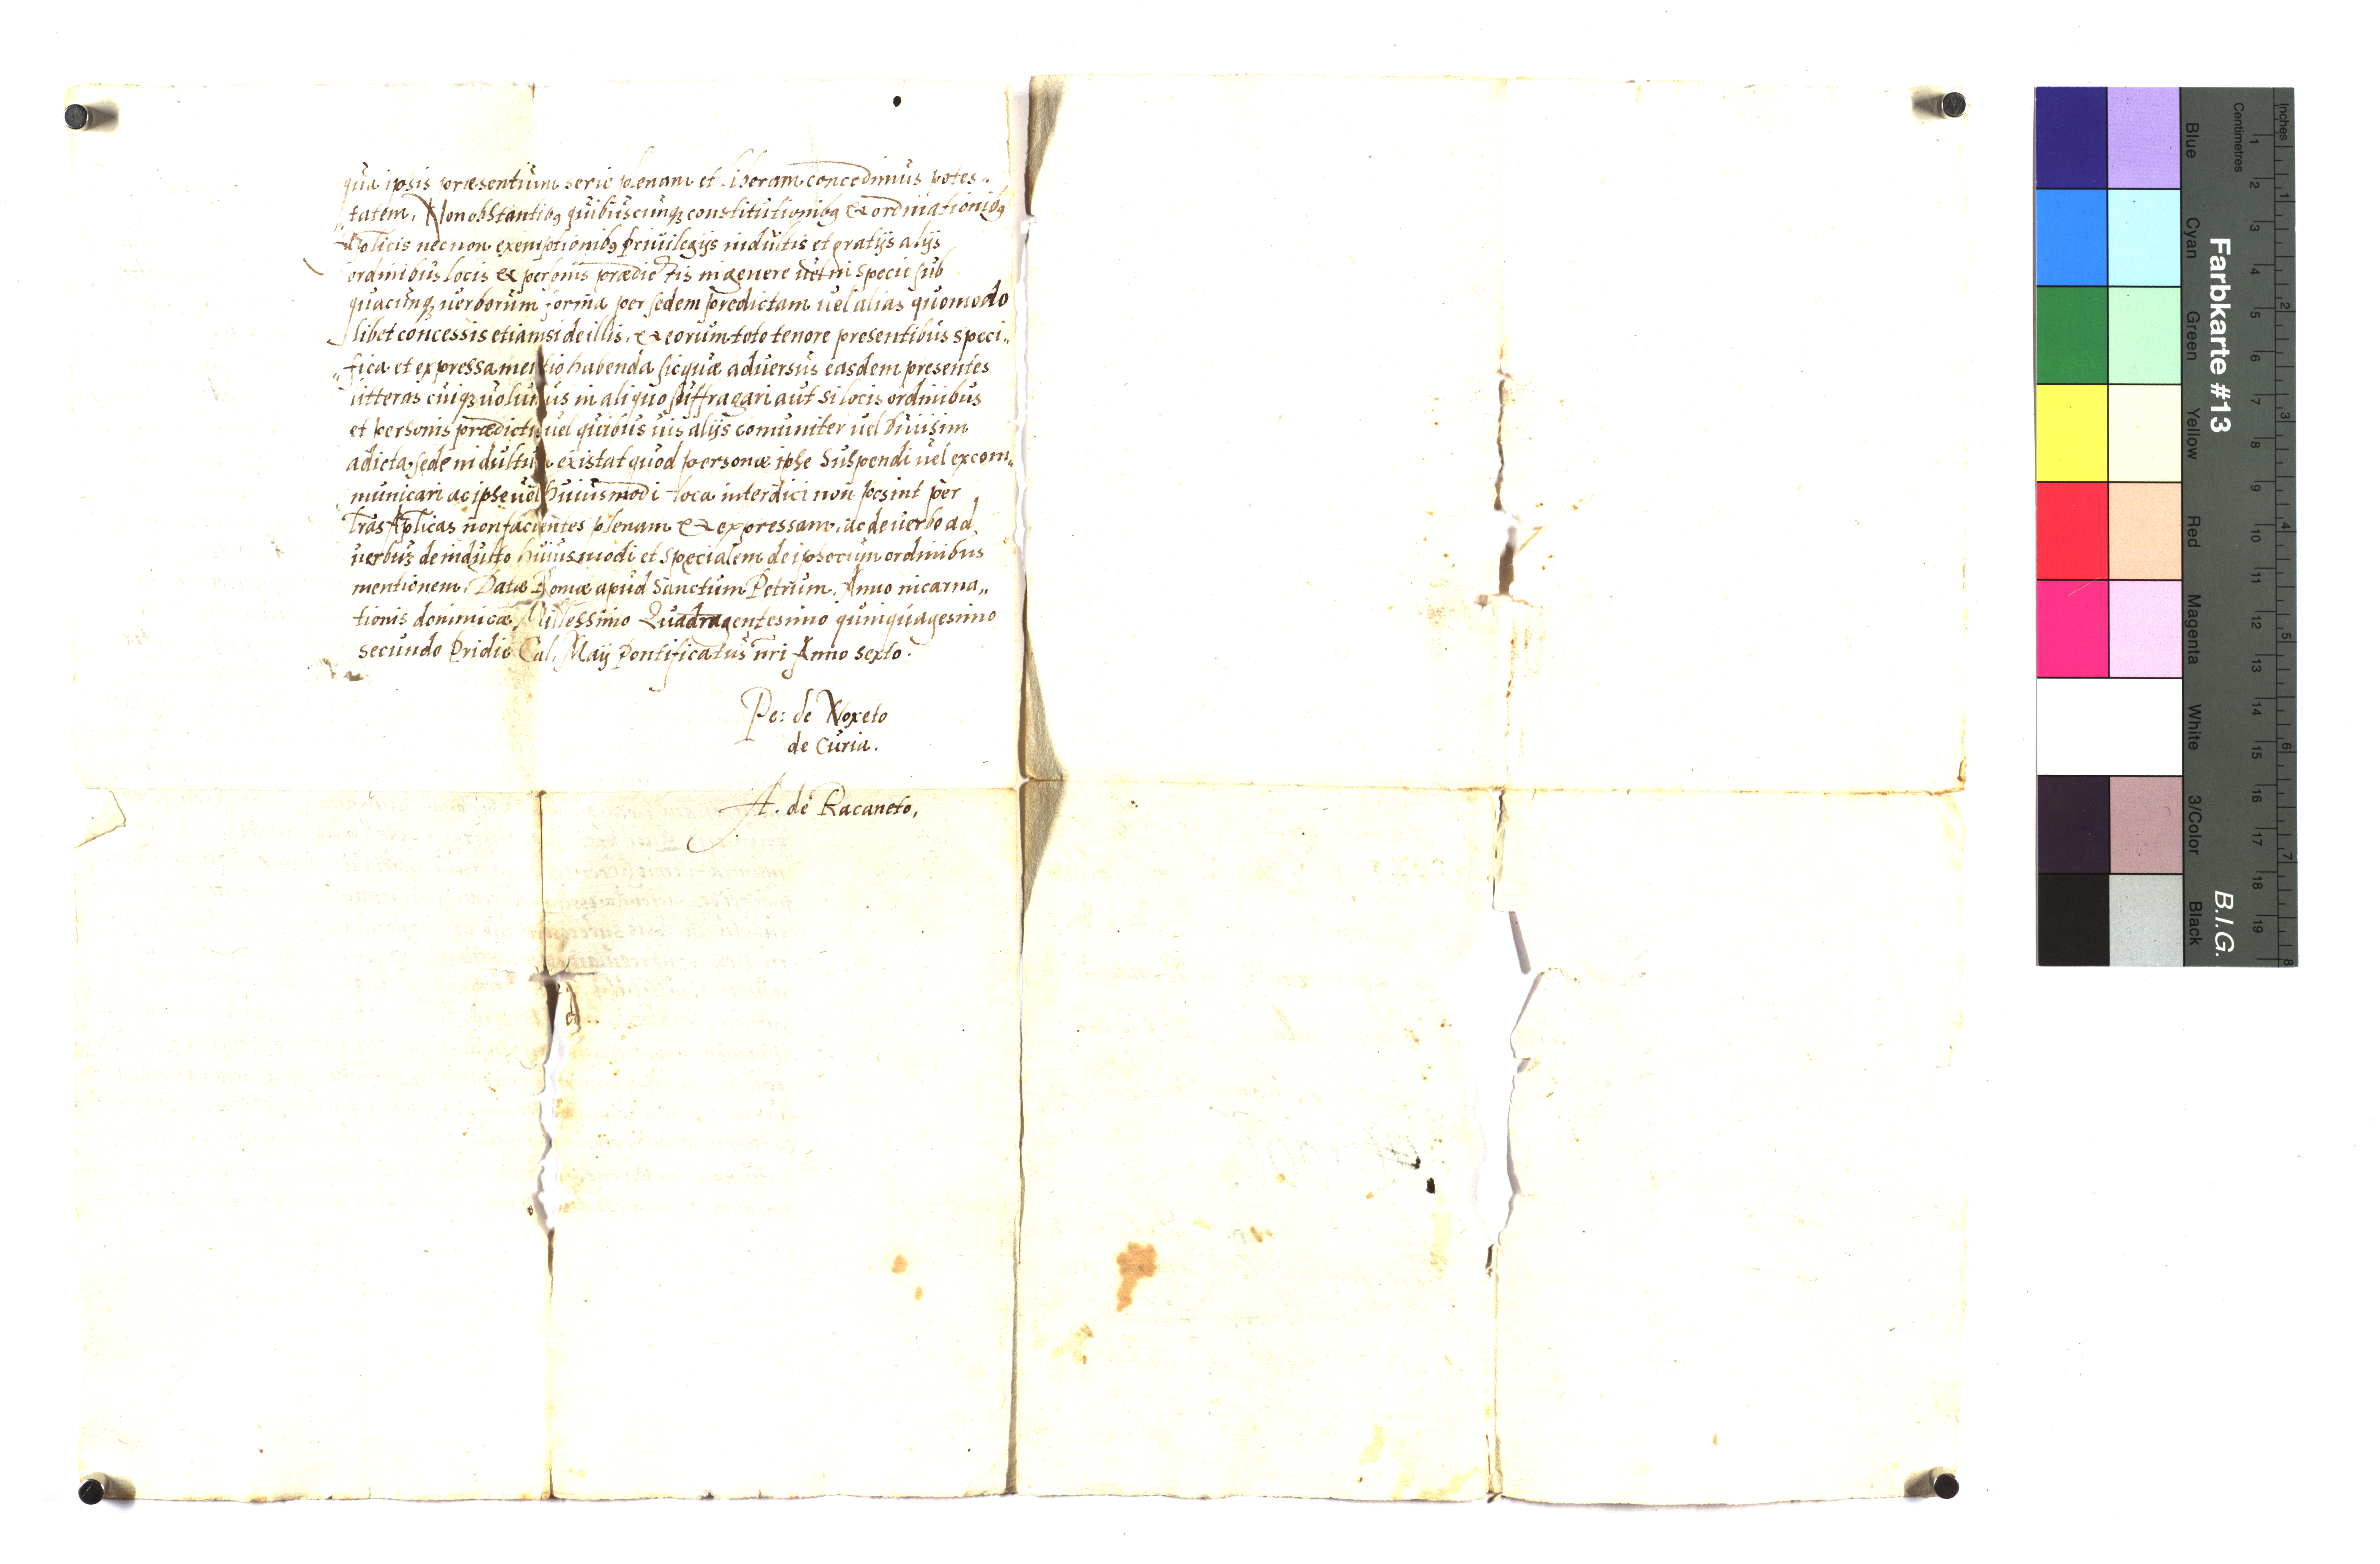 qua ipsis præsentium serie plenam et liberam concedimus potes„
tatem, Non obstantibꝰ quibuscunqꝫ constitutionibꝰ & ordinationibꝰ
Aplicis necnon exemptionibꝰ priuilegijs indultis et gratijs alijs
ordinibus locis & personis prædictis in genere uel in specie sub
quacunqꝫ uerborum forma per sedem predictam uel alias quomodo
libet concessis etiam si de illis, & eorum toto tenore presentibus speci„
„fica et expressa mentio habenda sic quæ aduersus easdem presentes
litteras cuiqꝫ uolumus in aliquo suffragari aut si locis ordinibus
et personis prædictis uel quibus uis alijs comuniter uel diuisim
a dicta sede indultum existat quod personæ ipse Suspendi uel excom„
municari ac ipse uel huiusmodi loca interdici non possint per
Lras Aplicas non facientes plenam & expressam, ac de uerbo ad
uerbuꝫ de indulto huiusmodi et specialem de ipsocum ordinibus
mentionem, Datæ Romæ apud Sanctum Petrum, Anno incarna„
tionis dominicæ Millessimo Quadragentesimo quinquagesimo
secundo Pridie Cal. Maij Pontificatus nri Anno sexto.
Pe: de Noxeto
de Curia.
A. de Racaneto,
Farbkarte #13
B.I.G.
Inches
Centimetres
Blue
Cyan
Green
Yellow
Red
Magenta
White
3/Color
Black
1 2 3 4 5 6 7 8 9 10 11 12 13 14 15 16 17 18 19
1 2 3 4 5 6 7 8